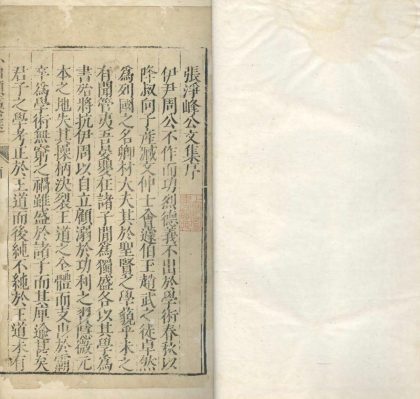 張淨峰公文集序
伊尹周公不作而功烈德義不出於學術春秋以
降叔向子產臧文仲士會蘧伯玉趙武之徒卓然
為列國之名卿材大夫其於聖賢之學藐乎未之
有聞管夷吾晏嬰在諸子間為獨盛各以其學為
書始將抗伊周以自立顧溺於功利之習薩徼元
本之地失其操柄決裂王道之全體而支曳於霸
幸為學術無窮之禍雖盛於諸子而其庳逾甚矣
君子之學考正於王道而後純不純於王道未有